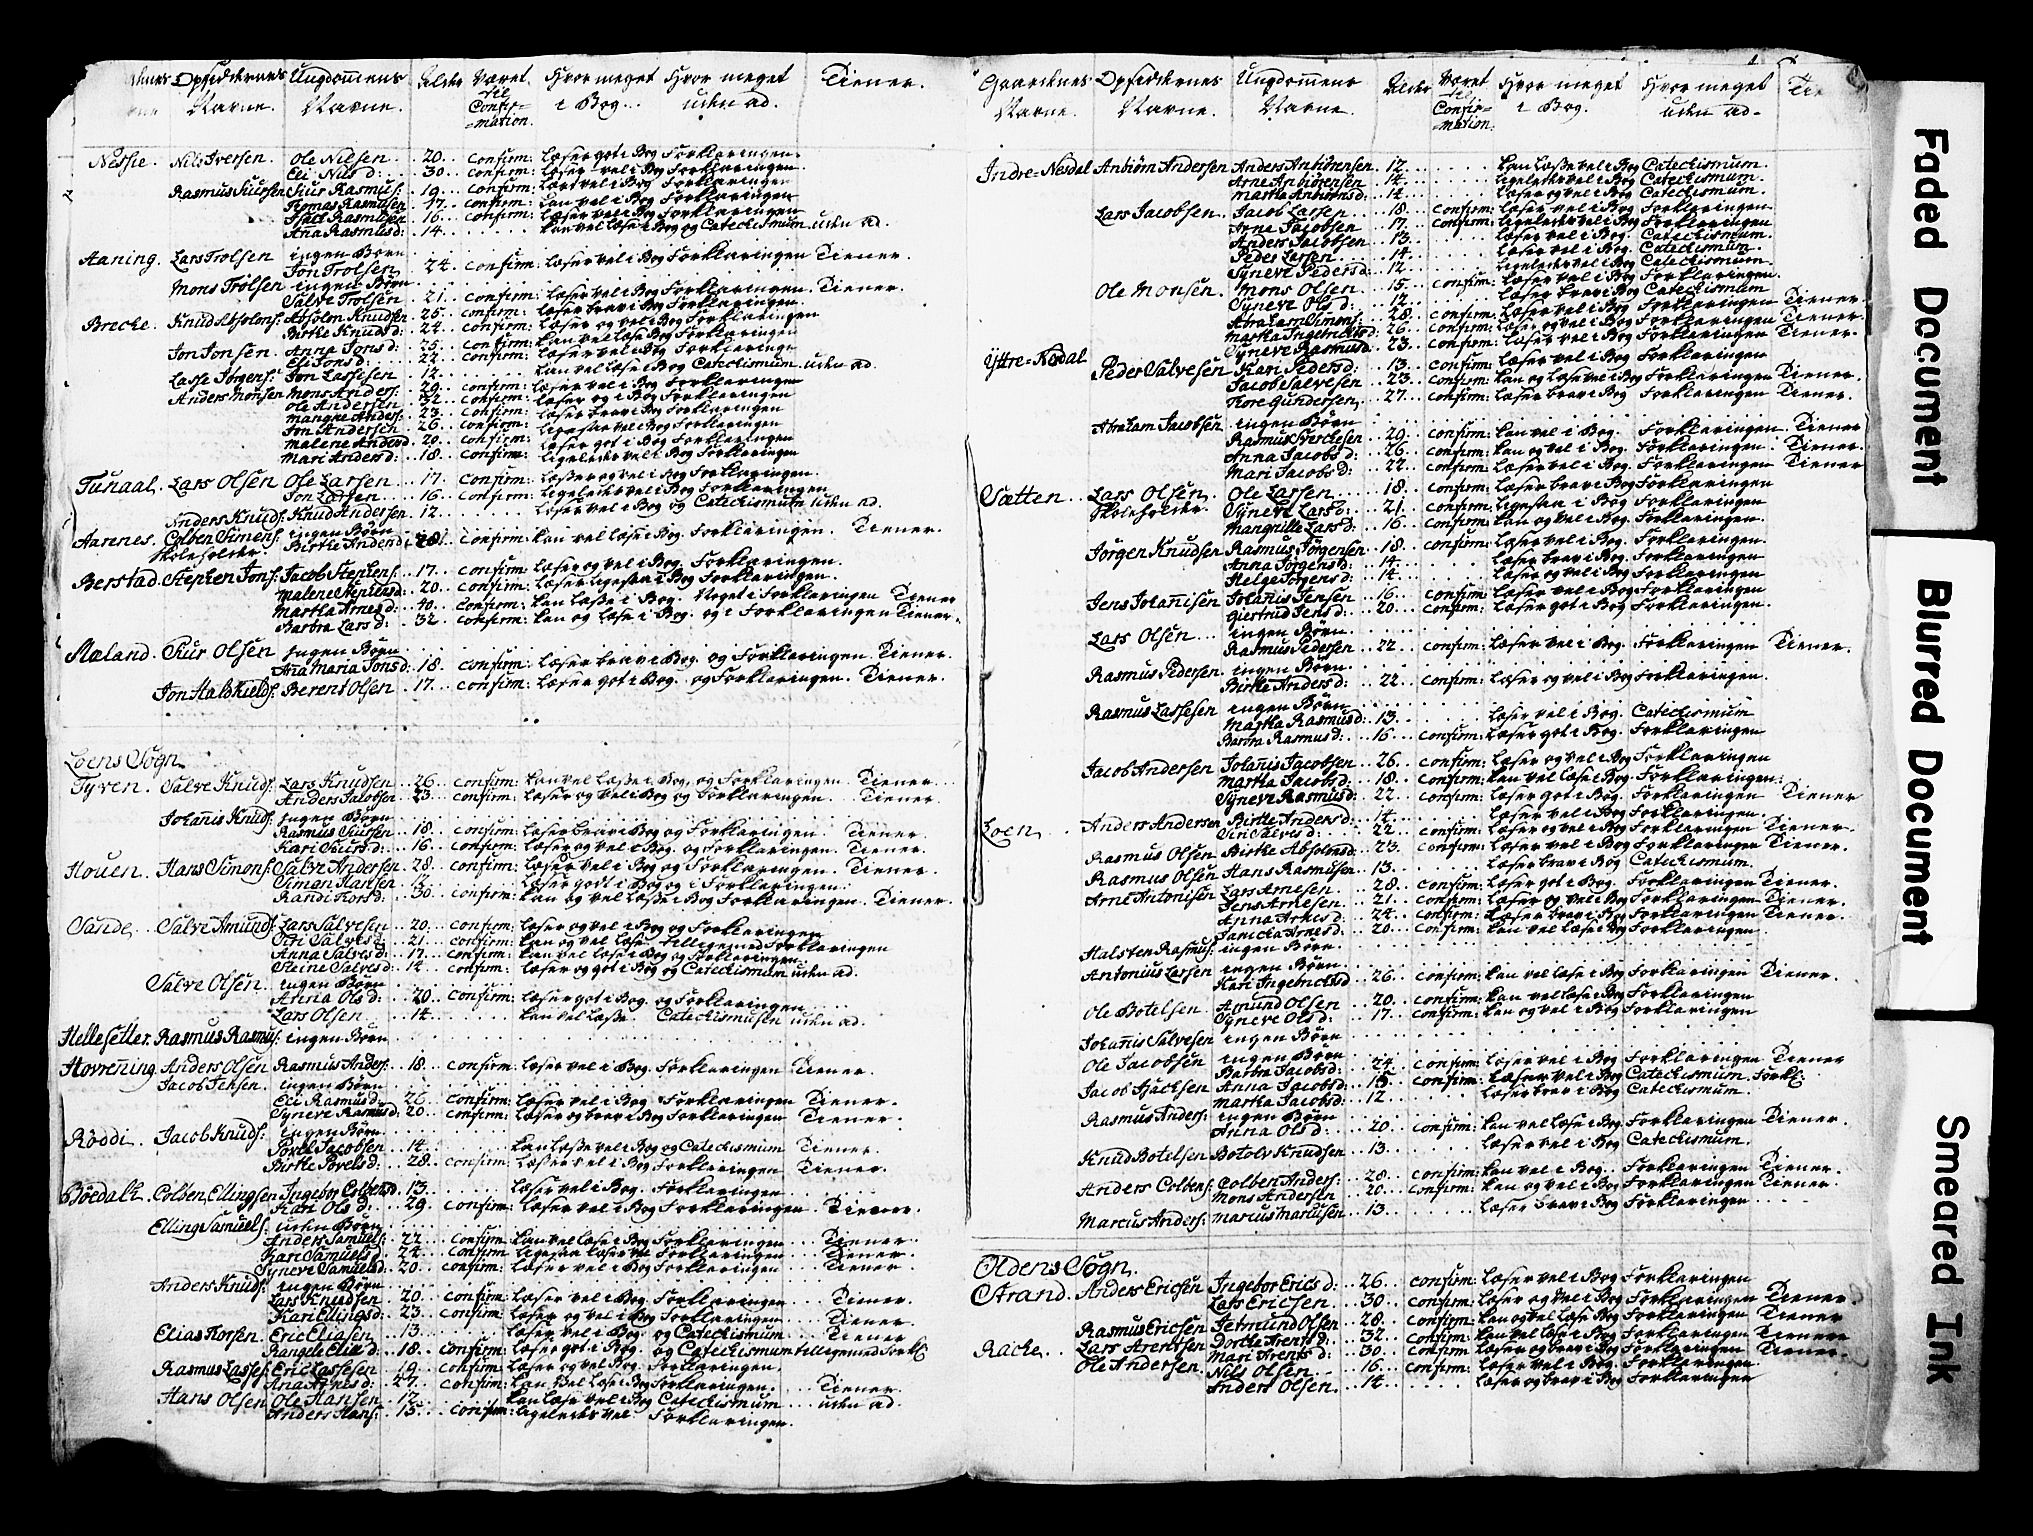 Opsiddernes Ungdomens Alder Været Hvor meget Hvor meget Tiener.
Navne. Navne. til Confir=mation. i Bog. uden ad.
Nesje. Nils Iversen. Ole Nilsen. 20. confirm: læser got i Bog Forklaringen.
Eli Nils d. 30. confirm: læser vel i Bog Forklaringen
Rasmus Siursen Siur Rasmus: 19. confirm: læser vel i Bog Forklaringen
Tomas Rasmusen 17. confirm: kan vel i Bog Forklaringen
Rasmusen 16. confirm: læser vel i Bog Forklaringen
Ana Rasmus d: 14. kan vel læse i Bog og Catechismum uden ad.
Aaning. Lars Trolsen ingen Børn
Jon Trolsen 24. confirm: læser vel i Bog Forklaringen Tiener.
Mons Trolsen ingen Børn
Salve Trolsen 21. confirm: læser vel i Bog Forklaringen Tiener.
Brecke. Knud Absolons: Absolon Knudsen 26. confirm: læser brav i Bog Forklaringen
Birthe Knuds d: 24. confirm: læser og vel i Bog Forklaringen
Jon Jonsen. Anna Jons d: 25. confirm: kan vel læse Bog Forklaringen
Eli Jons d: 22. confirm: læser vel i Bog Forklaringe
Lasse Jørgens: Jon Lassesen 12. kan vel læse i Bog Catechismum uden ad.
Anders Monsen Mons Anders: 29. confirm: læser vel i Bog Forklaringen
Ole Andersen 32. confirm: læser og i Bog Forklaringen
Mangne Anders: 23. confirm: læser brav i Bog Forklaringen
Jon Andersen 26. confirm: ligesaa vel i Bog Forklaringen
Malene Anders d 20. confirm: læser got i Bog Forklaringen
Mari Anders d: 18. confirm: ligeledes vel i Bog Forklaringen
Tunaal. Lars Olsen Ole Larsen 17. confirm: læser og vel i Bog Forklaringen.
Jon Larsen 16. confirm: ligeledes vel i Bog Forklaringen
Anders Knuds: Knud Andersen 12. læser vel i Bog og Catechismum uden ad.
Aarenes. Colben Simens: ingen Børn
Skoleholder. Birthe Anders d: 28. confirm: kan vel læse i Bog. Forklaringen. Tiener.
Berstad. Stephen Jons: Jacob Stephens: 17. confirm: læser og vel i Bog Forklaringen.
Malene Stephens d: 20. confirm: læser ligesaa i Bog Forklaringen.
Martha Arnes d: 40. confirm: kan læse i Bog. Noget i Forklaringen Tiener
Barbra Lars d: 32. confirm: kan og læse i Bog. og i Forklaringen Tiener.
Mæland. Siur Olsen Ingen Børn
Ana Maria Jons d: 18. confirm: læser brav i Bog. og Forklaringen. Tiener.
Jon Halskields: Berent Olsen 17. confirm: læser got i Bog. og Forklaringen. Tiener.
Loens Sogn
Tyven. Salve Knuds: Lars Knudsen 26. confirm: kan vel læse i Bog. og Forklaringen Tiener
Anders Jacobsen 23. confirm: læser og vel i Bog og Forklaringen Tiener
Johannis Knuds: Ingen Børn
Rasmus Siursen 18. confirm: læser brav i Bog og Forklaringen Tiener
Kari Siurs d: 16. confirm: læser og vel i Bog. og Forklaringen. Tiener.
Houen. Hans Simons: Salve Andersen 28. confirm: læser vel i Bog og Forklaringen. Tiener.
Simen Hansen læser godt i Bog og i Forklaringen.
Randi Tors d: 30. confirm: kan og vel læse i Bog Forklaringen. Tiener.
Sande. Salve Amunds: Lars Salvesen 20. confirm: læser og vel i Bog og Forklaringen
Siri Salves d: 21. confirm: kan og vel læse tilligemed Forklaringen
Anna Salves d: 17. confirm: kan vel læse i Bog og Forklaringen.
Steine Salves d: 14. confirm: læser og got i Bog og Catechismum uden ad.
Salve Olsen. ingen Børn
Anna Ols d: 20. confirm: læser got i Bog. og Forklaringen
Lars Olsen 14. kan vel læse. Catechismusen uden ad.
Hellesetter. Rasmus Rasmus: ingen Børn
Hovrening Anders Olsen Rasmus Anders: 18. confirm: læser vel i Bog. Forklaringen Tiener.
Jacob ingen Børn
Eli Rasmus d: 26. confirm: læser vel i Bog Forklaringen Tiener.
Synneve Rasmus d: 20. confirm: læser og brav i Bog Forklaringen Tiener.
Røddi. Jacob Knuds: ingen Børn
Povel Jacobsen 14. kan læse vel i Bog og Catechismum Tiener.
Birthe Povels d: 28. confirm: læser vel i Bog Forklaringen Tiener.
Bøedalk. Colben Ellingsen Ingebor Colbens d 13. læser vel i Bog. Forklaringen
Kari Ols d: 29. confirm: læser vel i Bog Forklaringen Tiener.
Elling Samuels: uden Børn
Anders Samuels: 22. confirm: kan vel læse i Bog Forklaringen Tiener.
Kari Samuels d: 24. confirm: ligesaa læser vel Forklaringen Tiener.
Synneve Samuels d: 20. confirm: læser vel i Bog Forklaringen Tiener.
Anders Knuds: ingen Børn
Lars Knudsen 20. confirm: læser vel i Bog Forklaringen Tiener.
Kari Ellings d: 23. confirm: læser og vel i Bog Forklaringen Tiener.
Elias Torsen. Eric Eliasen 13. læser vel i Bog og Catechismum Tiener
Rangele Elia d: 18. confirm: læser got i Bog og Catechismum tilligemed Forkl:
Rasmus Lasses: Eric Lassesen 19. confirm: læser og vel i Bog Forklaringen.
Ana Arnes d: 27. confirm: kan vel læse i Bog Forklaringen. Tiener
Hans Olsen Ole Hansen 12. kan læse vel i Bog Catechismum uden ad.
Anders Hans: 15. confirm: ligeledes vel Forklaringen.
Gaardenes Opsiddernes Ungdomens Alder Været Hvor meget Hvor meget
Navne. Navne. Navne. til Confir=mation. i Bog. uden ad.
Indre-Nesdal Anbiørn Andersen Anders Anbiørensen 12. kan læse vel i Bog Catechismum.
Arne Anbiørensen 14. ligeledes vel i Bog Catechismum.
Martha Anbiørns d: 14. læser og vel i Bog Catechismum.
Lars Jacobsen. Jacob Larsen 18. confirm: læser vel i Bog Forklaringen.
Arne Jacobsen 17. confirm: ligeledes vel i Bog Forklaringen
Anders Jacobsen 13. læser vel i Bog. Catechismum.
Peder Larsen 14. læser vel i Bog Catechismum.
Syneve Peders d: 12. ligeledes vel i Bog Catechismum.
Ole Monsen. Mons Olsen 15. confirm: læser vel i Bog Forklaringen.
Syneve Ols d: 12. læser brav i Bog Catechismum
Abraham Simons: 28. confirm: læser vel i Bog Forklaringen Tiener.
Martha Ingebricts d 26. confirm: læser og vel i Bog Forklaringen Tiener.
Syneve Rasmus d: 23. confirm: læser vel i Bog Forklaringen Tiener.
Yttre-Nesdal Peder Salvesen Kari Peders d: 13. confirm: læser vel i Bog Forklaringen
Jacob Salvesen 23. confirm: kan og læse vel i Bog Forklaringen Tiener.
Tore Gundersen, 27. confirm: læser brav i Bog Forklaringen Tiener.
Abraham Jacobsen ingen Børn
Rasmus Sverchesen 29. confirm: kan vel i Bog. Forklaringen. Tiener
Anna Jacobs d: 26. confirm: kan og vel i Bog. Forklaringen. Tiener.
Mari Jacobs d: 22. confirm: læser vel i Bog Forklaringen Tiener
Sætten. Lars Olsen, Ole Larsen 18. confirm: læser brav i Bog Forklaringen
Skoleholder Syneve Lars d: 21. confirm: ligesaa i Bog Forklaringen
Mangnille Lars d: 16. confirm: kan og vel i Bog. Forklaringen.
Jørgen Knudsen Rasmus Jørgensen 18. confirm: læser vel i Bog Forklaringen.
Anna Jørgens d: 14. læser brav i Bog Forklaringen
Helge Jørgens d: 14. læser og vel i Bog Forklaringen
Jens Johannisen Johanis Jensen 16. confirm: læser vel i Bog Forklaringen
Giertrud Jens d: 20. confirm: læser got i Bog Forklaringen.
Lars Olsen ingen Børn.
Rasmus Pedersen 22. confirm: læser vel i Bog Forklaringen Tiener.
Rasmus Pedersen. ingen Børn
Birthe Anders d: 22. confirm: læser og vel i Bog Forklaringen.
Rasmus Lassesen ingen Børn
Martha Rasmus d: 13. læser vel i Bog. Catechismum
Barbra Rasmus d: 16. confirm: læser got i Bog. Forklaringen
Jacob Andersen Johanis Jacobsen 26. confirm: læser og vel i Bog Forklaringen
Martha Jacobs d: 18. confirm: kan vel læse i Bog. Forklaringen.
Syneve Rasmus d: 22. confirm: læser got i Bog Forklaringen Tiener
Loen. Anders Andersen Birthe Anders d: 14. læser vel i Bog. Forklaringen.
Siri Salves d: 22. confirm: læser og vel i Bog Forklaringen Tiener.
Rasmus Olsen Birthe Absolons d: 23. confirm: læser vel i Bog Forklaringen Tiener.
Rasmus Olsen Hans Rasmusen 13. læser brav i Bog Catechismum.
Arne Antonisen Lars Arnesen 28. confirm: læser got i Bog. Forklaringen Tiener.
Jens Arnesen 21. confirm: læser og vel i Bog Forklaringen Tiener.
Anna Arnes d: 24. confirm: læser brav i Bog Forklaringen Tiener.
Janicka Arnes d: 20. confirm: kan vel læse i Bog Forklaringen.
Halsten Rasmus: ingen Børn
Antonius Larsen ingen Børn.
Kari Ingebricts d 26. confirm: kan vel læse i Bog Forklaringen Tiener.
Ole Botelsen Amund Olsen 20. confirm: kan vel læse i Bog Forklaringen
Syneve Ols d: 17. confirm: kan og vel i Bog Forklaringen
Johanis Salvesen ingen Børn
Ole Jacobsen ingen Børn
Barbra Jacobs d: 24. confirm: læser vel i Bog Forklaringen Tiener
Jacob Anna Jacobs d: confirm: læser vel i Bog Catechismum. Forkl:
Martha Jacobs d: 12. læser brav i Bog Catechismum.
Rasmus Anders: ingen Børn
Anna Ols d: 20. confirm: kan vel læse i Bog Forklaringen Tiener.
Knud Botelsen Botolv Knudsen 13. læser vel i Bog Catechismum.
Anders Colbens: Colben Anders: 28. confirm: kan vel i Bog. Forklaringen Tiener.
Mons Andersen 20. confirm: kan og vel i Bog Forklaringen Tiener.
Marcus Anders: Marcus Marcusen 13. læser brav i Bog Forklaringen
Oldens Sogn
Strand. Anders Ericsen Ingebor Erics d: 26. confirm: læser vel i Bog Forklaringen
Lars Ericsen 30. confirm: læser og vel i Bog Forklaringen Tiener.
Rasmus Ericsen Jetmund Olsen 28. confirm: kan og vel læse i Bog Forklaringen Tiener
Racke. Lars Arentsen Dorthe Arents d: 32. confirm: kan vel læse i Bog Forklaringen Tienere
Mari Arents d: 30. confirm: læser og brav i Bog Forklaringen Tiener.
Ole Andersen. Nils Olsen 16. confirm: læser vel i Bog Forklaringen
Anders Olsen. 14. læser og brav i Bog Forklaringen
Faded Document
Blurred Document
Smeared Ink